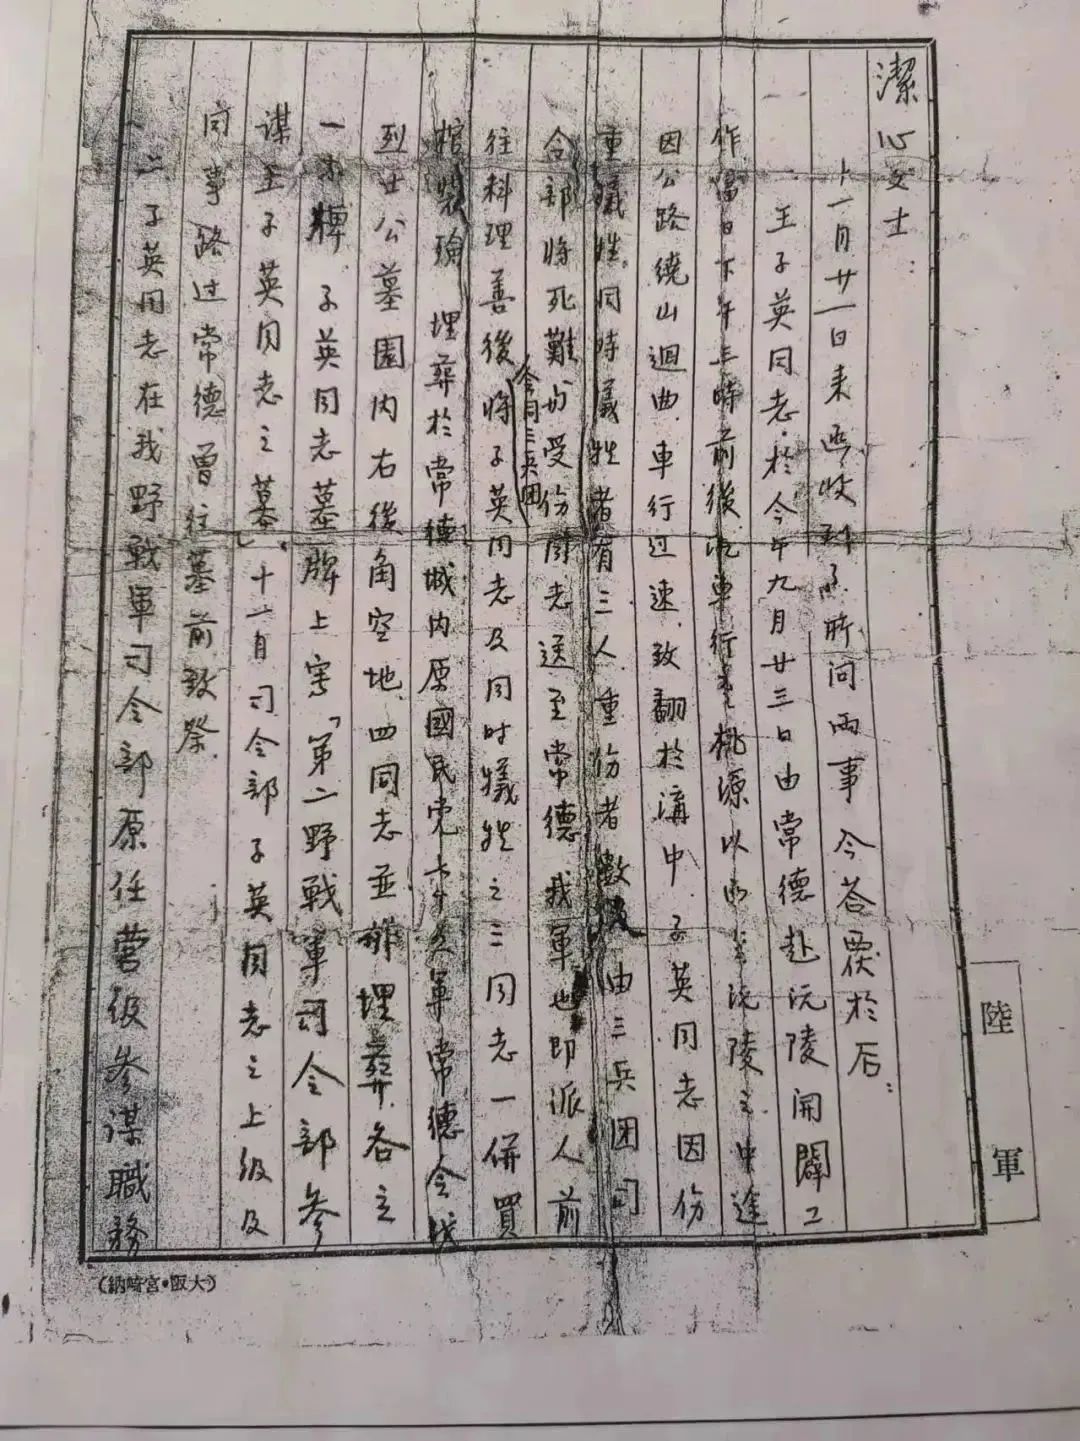 潔心女士：
十一月廿一日来函收到了.所问两事今荅覆於后：
王子英同志.於今年九月廿三日由常德赴沅陵開闢工
作當日下午三時前後.汽車行至桃源以西至沅陵之中途
因公路繞山迴曲.車行过速.致翻於溝中.子英同志因伤
重犧牲.同時犧牲者有三人重伤者數
由三兵团司
令部將死難
受伤同志送至常德我軍也即派人前
会同三兵团
往料理善後將子英同志及同时犧牲之三同志一併買
棺裝殮埋葬於常德城内原國民党
軍常德会战
烈士公墓園内右後角空地.四同志並排埋葬.各立
一木牌子英同志墓牌上書「第二野戰軍司令部参
谋王子英同志之墓」.十一月司令部子英同志之上级及
同事路过常德曾往墓前致祭.
二子英同志在我野戰軍司令部原任营级参谋職務
陸軍
（納崎宮•阪大）